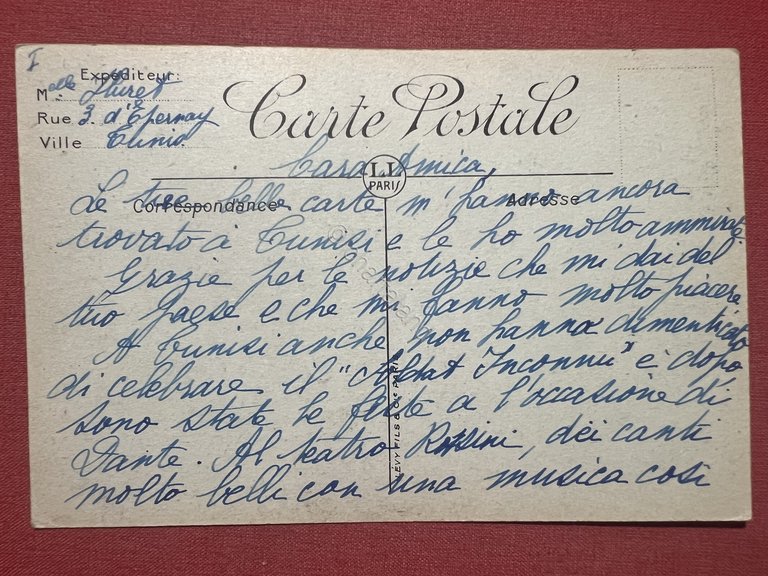 I
Expéditeur:
Melle Huret
Rue 3. d'Épernay
Ville Tunis
Carte Postale
LL
PARIS
Correspondance
Adresse
Cara Amica,
Le tue belle carte m'hanno ancora
trovato à Tunisi e le ho molto ammirate.
Grazie per le notizie che mi dai del
tuo paese e che mi fanno molto piacere
A Tunisi anche non hanno dimenticato
di celebrare il "Soldat Inconnu" e dopo
sono state le feste a l'occasione di
Dante. Al teatro Rossini, dei canti
molto belli con una musica così
LÉVY FILS & Cie PARIS